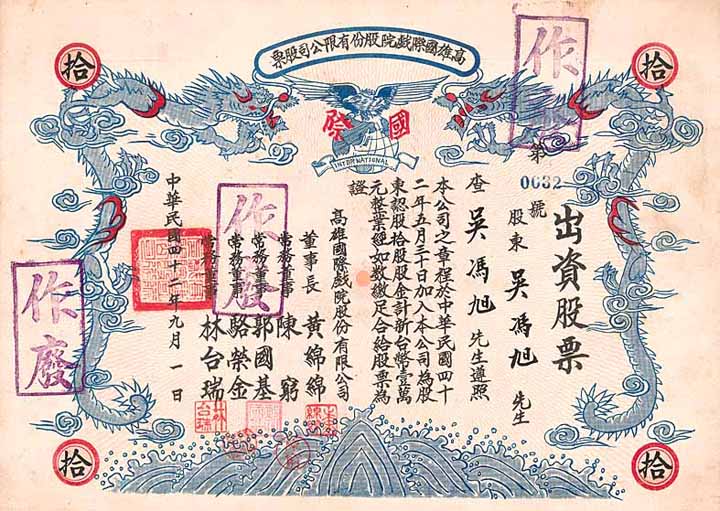 高雄國際戲院股份有限公司股票
拾
拾
國際
INTERNATIONAL
作廢
出資股票
第0632號
股東 吳馮旭 先生
查 吳馮旭 先生遵照
本公司之章程於中華民國四十
二年五月三十日加入本公司為股
東認股拾股股金計新台幣壹萬
元整業經如數繳足合給股票為
證
高雄國際戲院股份有限公司
董事長 黃綿綿
常務董事 陳窮
常務董事 郭國基
常務董事 駱榮金
常務董事 林台瑞
中華民國四十二年九月一日
作廢
作廢
林台瑞
拾
拾